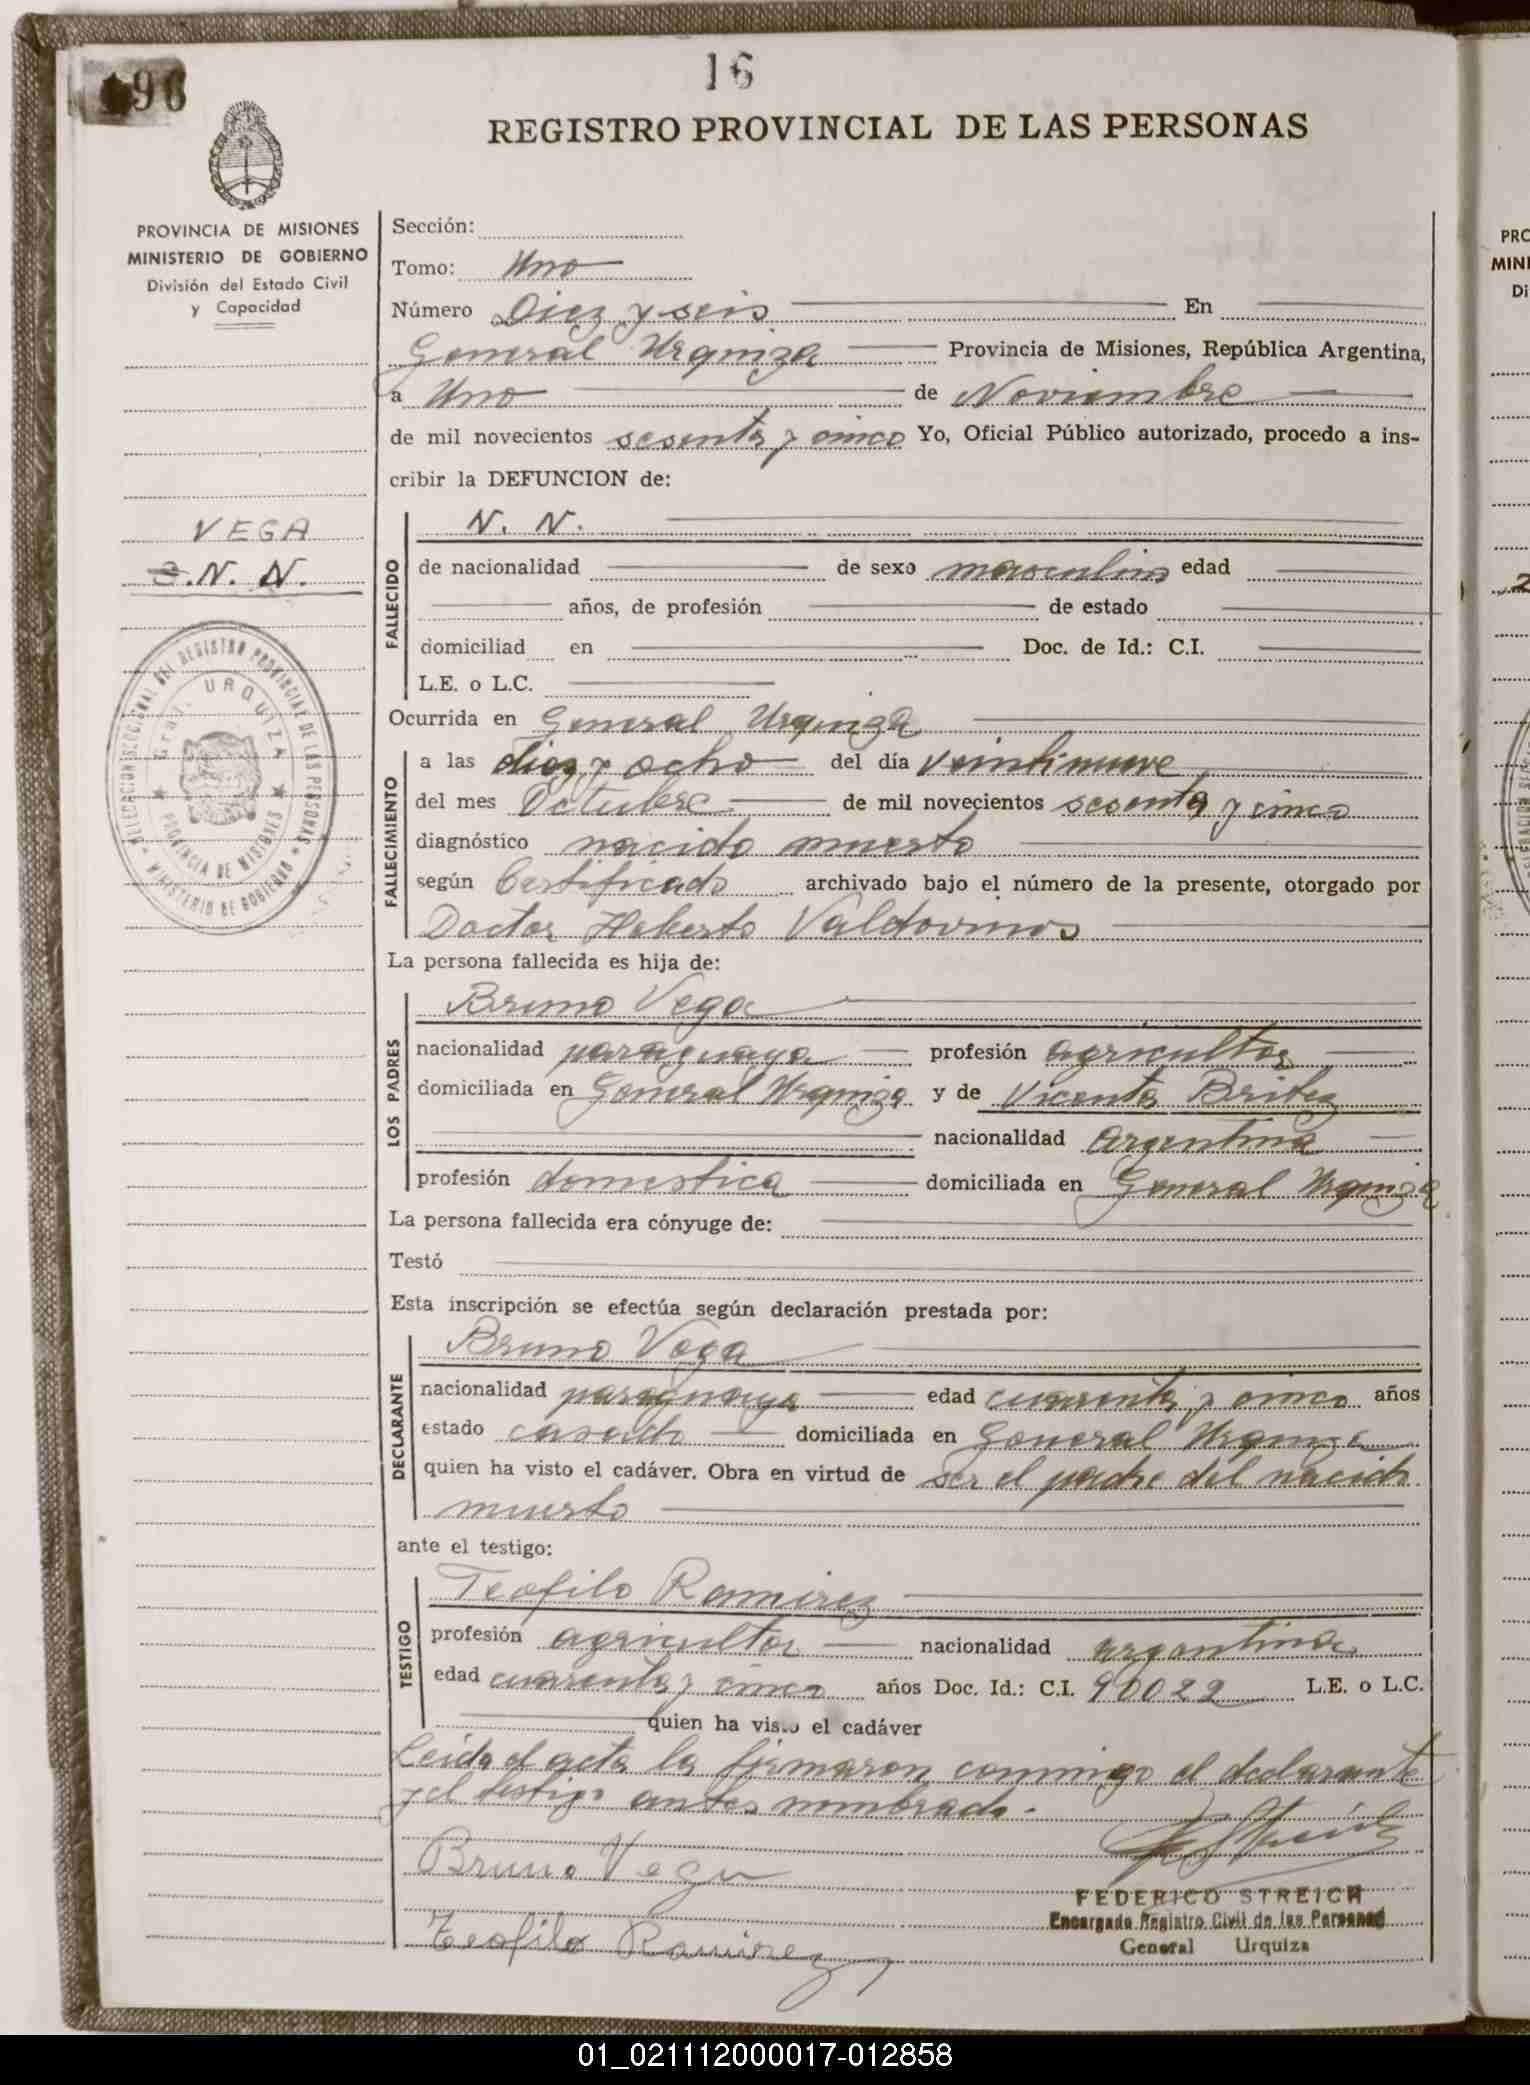 96
16
REGISTRO PROVINCIAL DE LAS PERSONAS
PROVINCIA DE MISIONES
MINISTERIO DE GOBIERNO
División del Estado Civil
y Capacidad
VEGA
N. N.
DELEGACION SECCIONAL DEL REGISTRO PROVINCIAL DE LAS PERSONAS
MINISTERIO DE GOBIERNO
Gral. URQUIZA
PROVINCIA DE MISIONES
Sección:
Tomo: Uno
Número Diez y seis En
General Urquiza Provincia de Misiones, República Argentina,
a Uno de Noviembre
de mil novecientos sesenta y cinco Yo, Oficial Público autorizado, procedo a ins-
cribir la DEFUNCION de:
FALLECIDO
N. N.
de nacionalidad de sexo masculino edad
años, de profesión de estado
domiciliad en Doc. de Id.: C.I.
L.E. o L.C.
Ocurrida en General Urquiza
FALLECIMIENTO
a las diez y ocho del día veintinueve
del mes Octubre de mil novecientos sesenta y cinco
diagnóstico nacido muerto
según Certificado archivado bajo el número de la presente, otorgado por
Doctor Heberto Valdovinos
La persona fallecida es hija de:
LOS PADRES
Bruno Vega
nacionalidad paraguaya profesión agricultor
domiciliada en General Urquiza y de Vicenta Britez
nacionalidad argentina
profesión domestica domiciliada en General Urquiza
La persona fallecida era cónyuge de:
Testó
Esta inscripción se efectúa según declaración prestada por:
DECLARANTE
Bruno Vega
nacionalidad paraguaya edad cuarenta y cinco años
estado casado domiciliada en General Urquiza
quien ha visto el cadáver. Obra en virtud de ser el padre del nacido
muerto
ante el testigo:
TESTIGO
Teofilo Ramirez
profesión agricultor nacionalidad argentina
edad cuarenta y cinco años Doc. Id.: C.I. 90022 L.E. o L.C.
quien ha visto el cadáver
Leida el acta la firmaron conmigo el declarante
y el testigo antes nombrado.
Bruno Vega
FEDERICO STREICH
Encargado Registro Civil de las Personas
General Urquiza
Teofilo Ramirez
PRO
MINI
Di
01_021112000017-012858